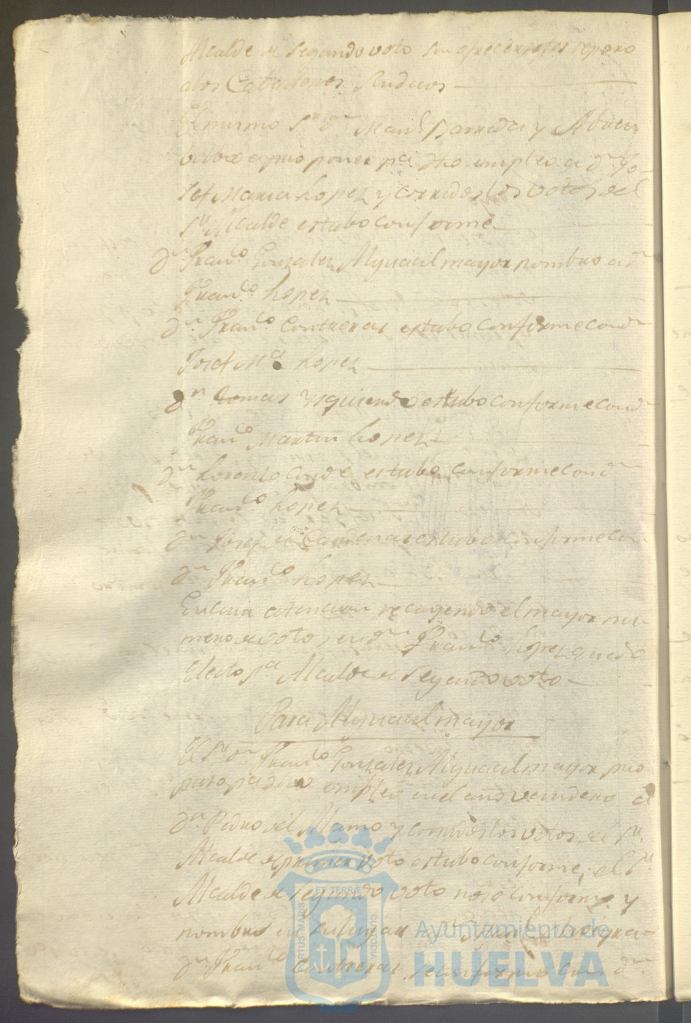 Alcalde de segundo voto sin ofrecerseles reparo
a los Cavalleros Sindicos
El mismo Sr. Dn. Manl. Barreda y
a proponer pa. dho empleo a Dn. Jo-
sef Maria Lopez y corridos los votos el
Sr. Alcalde estubo conforme
Dn. Franco. Gonzalez Alguacil mayor nombro a Dn.
Franco. Lopez
Dn. Franco. Contreras estubo conforme con Dn.
Josef Ma. Lopez
Dn. Tomas Yzquierdo estubo conforme con Dn.
Franco. Martin Lopez
Dn. Lorenzo Conde estubo conforme con Dn.
Franco. Lopez
Dn. Josef de estubo conforme con
Dn. Franco. Lopez
En cuia atencion recayendo el mayor nu-
mero de votos en Dn. Franco. Lopez quedo
electo pa. Alcalde de segundo voto
Para Alguacil mayor
El Sr. Dn. Franco. Gonzalez Alguacil mayor pro
puso pa. dho empleo en el año venidero a
Dn. Pedro del y corridos los votos el Sr.
Alcalde de primer voto estubo conforme; el Sr.
Alcalde de segundo voto no se conformo y
nombro en su lugar a
Dn. Franco. Contreras se conformo con Dn.
Ayuntamiento de
HUELVA